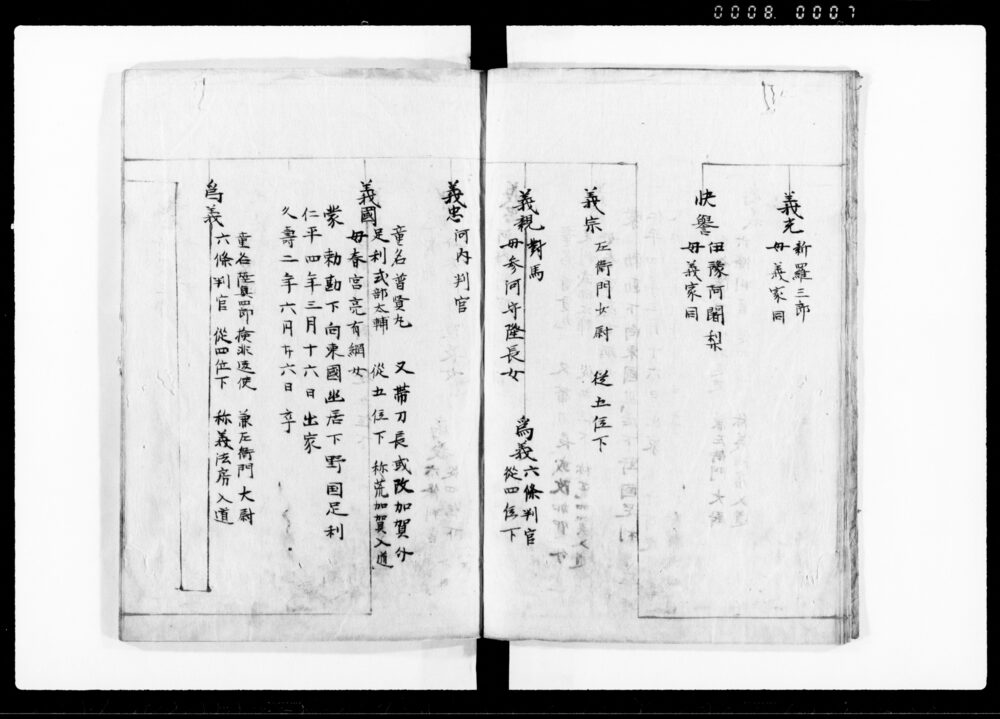 0008 0007
義光
新羅三郎
母義家同
快譽
伊豫阿闍梨
母義家同
義宗
左衛門少尉 從五位下
義親
對馬
母参河守隆長女
爲義
六條判官
從四位下
義忠
河内判官
義國
童名普賢丸 又帯刀長或改加賀介
足利式部太輔 從五位下 称荒加賀入道
母春宮亮有綱女
蒙 勅勘下向東國坐居下野国足利
仁平四年三月十六日出家
久壽二年六月廿六日卒
爲義
童名陸奥四郎 検非违使 兼左衛門大尉
六條判官 從四位下 称義法房入道